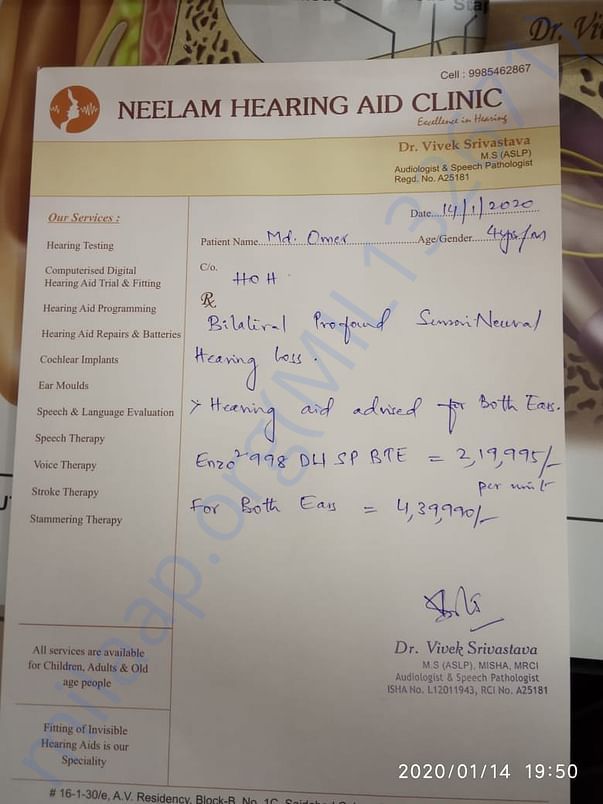 Dr. Vi
Cell : 9985462867
NEELAM HEARING AID CLINIC
Excellence in Hearing
Dr. Vivek Srivastava
M.S (ASLP)
Audiologist & Speech Pathologist
Regd. No. A25181
Our Services :
Hearing Testing
Computerised Digital
Hearing Aid Trial & Fitting
Hearing Aid Programming
Hearing Aid Repairs & Batteries
Cochlear Implants
Ear Moulds
Speech & Language Evaluation
Speech Therapy
Voice Therapy
Stroke Therapy
Stammering Therapy
All services are available
for Children, Adults & Old
age people
Fitting of Invisible
Hearing Aids is our
Speciality
Date...14/1/2020
Patient Name...Md. Omer...Age/Gender...4yrs/m
C/o. HOH
Rx
Bilateral Profound SensoriNeural
Hearing loss.
> Hearing aid advised for Both Ears.
Enzo² 998 DW SP BTE = 2,19,995/-
per unit
For Both Ears = 4,39,990/-
Dr. Vivek Srivastava
M.S (ASLP), MISHA, MRCI
Audiologist & Speech Pathologist
ISHA No. L12011943, RCI No. A25181
# 16-1-30/e, A.V. Residency, Block-B, No. 1C,
2020/01/14 19:50